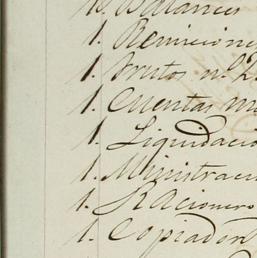 10. Balances
1. Remisione
1. Frutos nº 2
1. Cuentas m
1. Liquidacio
1. Ministraci
1. Racionero
1. Copiador